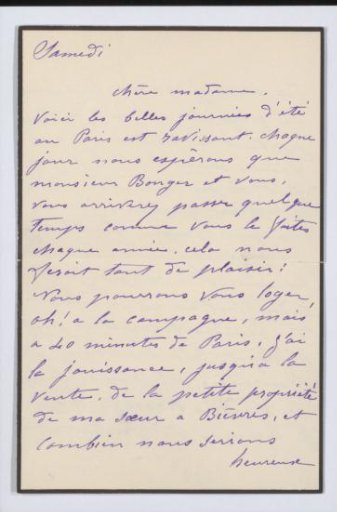 Samedi
chère madame,
Voici les belles journées d'été
ou Paris est ravissant. chaque
jour nous espérons que
monsieur Bonger et vous,
vous arriverez passer quelque
temps comme vous le faites
chaque année. cela nous
ferait tant de plaisir!
Nous pourrons vous loger,
oh! a la campagne, mais
a 40 minutes de Paris, j'ai
la jouissance, jusqu'a la
vente, de la petite propriété
de ma sœur a Bièvres, et
combien nous serions
heureuse